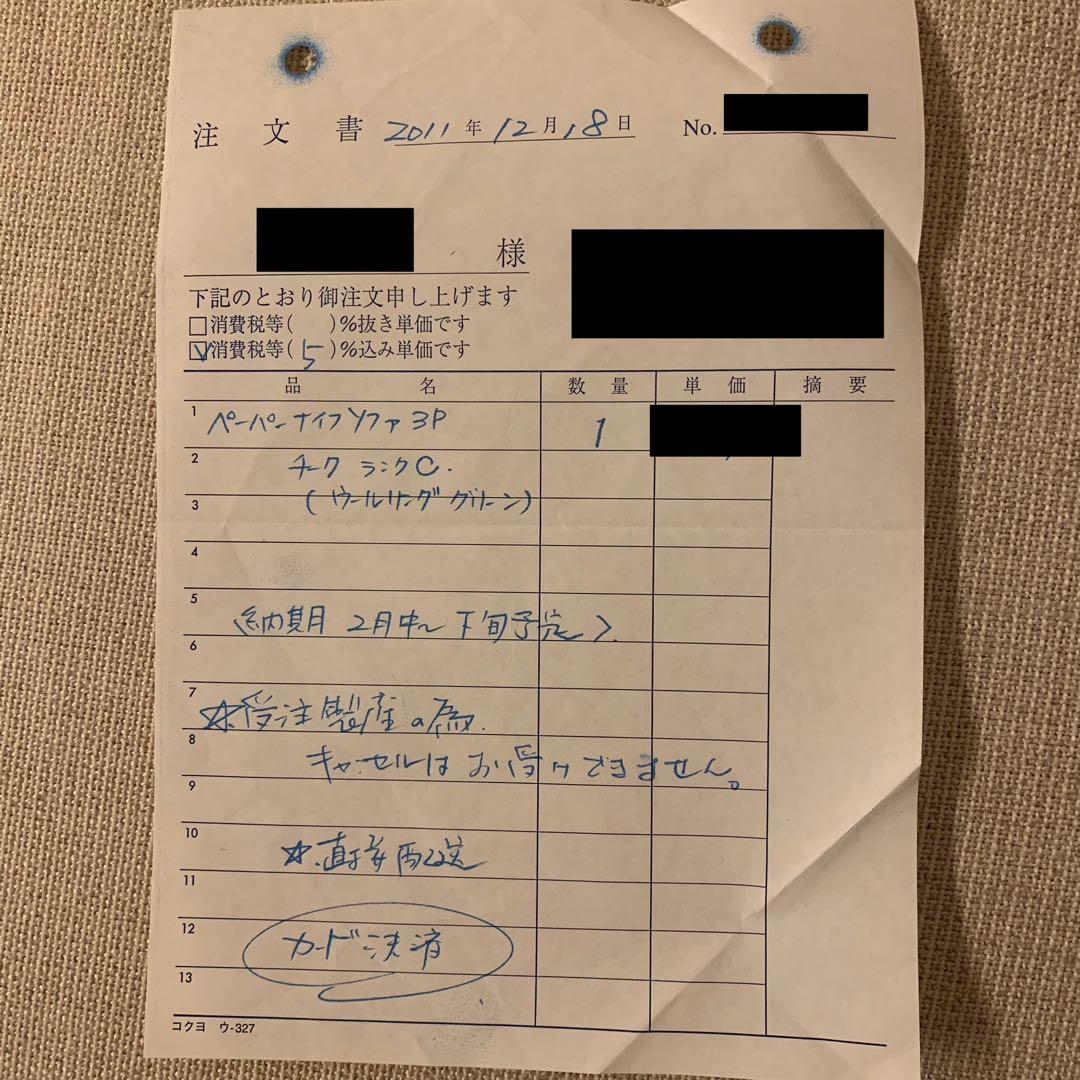 注文書 2011年12月18日 No.
様
下記のとおり御注文申し上げます
□消費税等( )%抜き単価です
☑消費税等(5)%込み単価です
品名 数量 単価 摘要
1 ペーパーナイフソファ3P 1
2 チーク ランクC.
(ウールリングググリーン)
3
4
5 納期 2月中〜下旬予定
6
7 ☆受注製産の為.
8 キャンセルはお受けできません。
9
10 ☆.直接配送
11
12 カード決済
13
コクヨ ウ-327